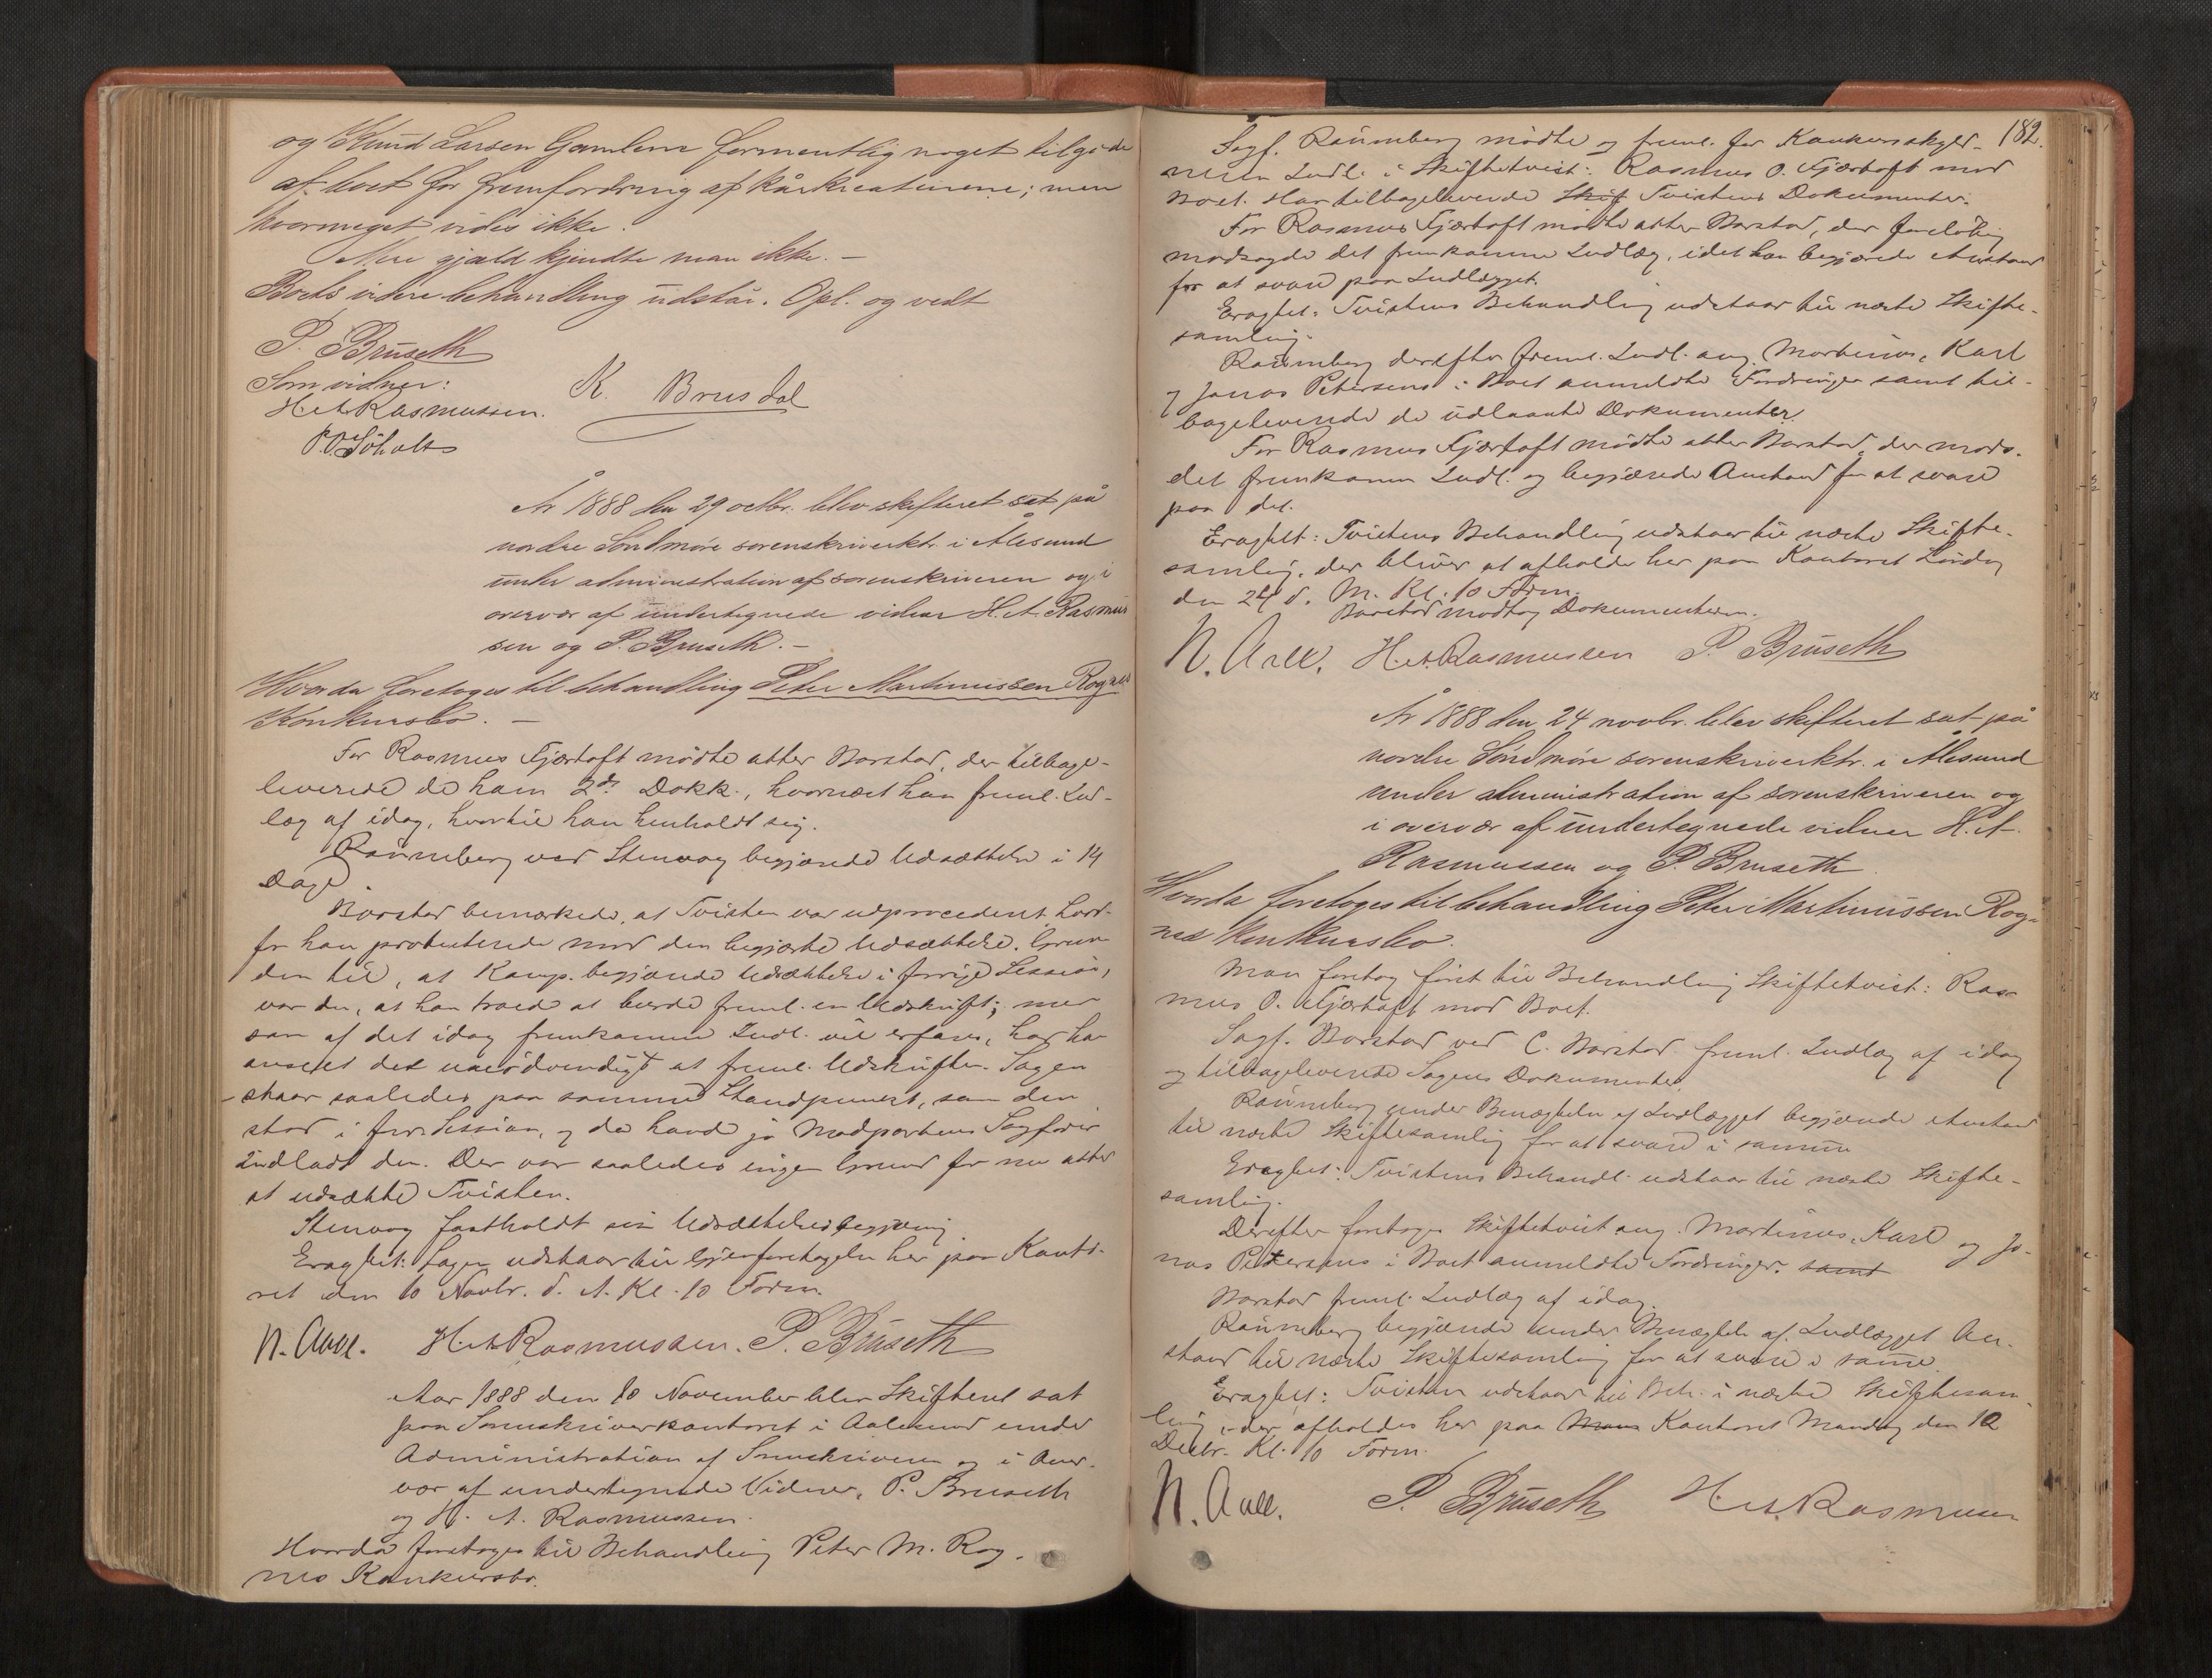 og Knud Larsen Gamlem formentlig noget tilgode
af boet for fremfordring af kårkreaturene; men
hvormeget vides ikke.
Mere gjæld kjendte man ikke. –
Boets videre behandling udstår. Opl. og vedt
P. Bruseth
Som vidner:
H. A. Rasmussen.
K. Brusdal
P. O. Søholt
År 1888 den 29 octbr. blev skifteret sat på
nordre Søndmøre sorenskriverktr. i Ålesund
under administration af sorenskriveren og i
overvær af undertegnede vidner H. A. Rasmus
sen og P. Bruseth. –
Hvorda foretoges til behandling Peter Martinussen Rognes
Konkursbo. –
For Rasmus Fjærtoft mødte atter Barstad, der tilbage-
leverede de ham Dokk., hvornæst han freml. Ind-
læg af idag, hvortil han henholdt sig.
Rønneberg ved Stenvaag begjærede Udsættelse i 14
Dage.
Barstad bemærkede, at Tvisten var udprocederet, hvor-
for han protesterede mod den begjærte Udsættelse. Grun
den til, at Komp. begjærede Udsættelse i forrige Session,
var den, at han troede at burde freml. en Udskrift; men
som af det idag fremkomne Indl. vil erfares, har han
anseet det unødvendigt at freml. Udskriften. Sagen
staar saaledes paa samme Standpunkt, som den
stod i forr. Session, og da havde jo Modpartens Sagfører
indladt den. Der var saaledes ingen Grund for nu atter
at udsætte Tvisten.
Stenvaag fastholdt sin Udsættelsesbegjæring.
Eragtet: Sagen udstaar til Gjenforetagelse her paa Konto-
ret den 10 Novbr. d. A. Kl. 10 Form.
N. Aall. H. A. Rasmussen. P. Bruseth
Aar 1888 den 10 November blev Skifteret sat
paa Sorenskriverkontoret i Aalesund under
Administration af Sorenskriveren og i Over-
vær af undertegnede Vidner, P. Bruseth
og H. A. Rasmussen.
Hvorda foretoges til Behandling Peter M. Rog-
nes Konkursbo.
182.
Sagf. Rønneberg mødte og freml. for Konkursskyld-
neren Indl. i Skiftetvist: Rasmus O. Fjærtoft mod
Boet. Han tilbageleverede Skif Tvistens Dokumenter.
For Rasmus Fjærtoft mødte atter Barstad, der foreløbig
modsagde det fremkomne Indlæg, idet han begjærede Anstand
for at svare paa Indlægget.
Eragtet: Tvistens Behandling udstaar til næste Skifte-
samling.
Rønneberg derefter freml. Indl. ang. Martinus, Karl
og Jonas Petersens i Boet anmeldte Fordringer samt til-
bageleverede de udlaante Dokumenter.
For Rasmus Fjærtoft mødte atter Barstad, der mods.
det fremkomne Indl. og begjærede Anstand for at svare
paa det.
Eragtet: Tvistens Behandling udstaar til næste Skifte-
samling, der bliver at afholde her paa Kontoret Lørdag
den 24 d. M. Kl. 10 Form.
Barstad modtog Dokumenterne.
N. Aall. H. A. Rasmussen P. Bruseth
År 1888 den 24 novbr. blev skifteret sat på
nordre Søndmøre sorenskriverktr. i Ålesund
under administration af sorenskriveren og
i overvær af undertegnede vidner H. A.
Rasmussen og P. Bruseth.
Hvorda foretoges til behandling Peter Martinussen Rog-
nes Konkursbo.
Man foretog først til Behandling Skiftetvist: Ras
mus O. Fjærtoft mod Boet.
Sagf. Barstad ved C. Barstad freml. Indlæg af idag
og tilbageleverede Sagens Dokumenter.
Rønneberg under Benægtelse af Indlægget begjærede Anstand
til næste Skiftesamling for at svare i samme
Eragtet: Tvistens Behandl. udstaar til næste Skifte-
samling.
Derefter foretoges Skiftetvist ang. Martinus, Karl og Jo-
nas Petersens i Boet anmeldte Fordringer. samt
Barstad freml. Indlæg af idag.
Rønneberg begjærede under Benægtelse af Indlægget An-
stand til næste Skiftesamling for at svare i samme.
Eragtet: Tvisten udstaar til Beh. i næste Skiftesam
ling, der afholdes her paa Kontoret Mandag den 10
Decbr. Kl. 10 Form.
N. Aall. P. Bruseth H. A. Rasmussen